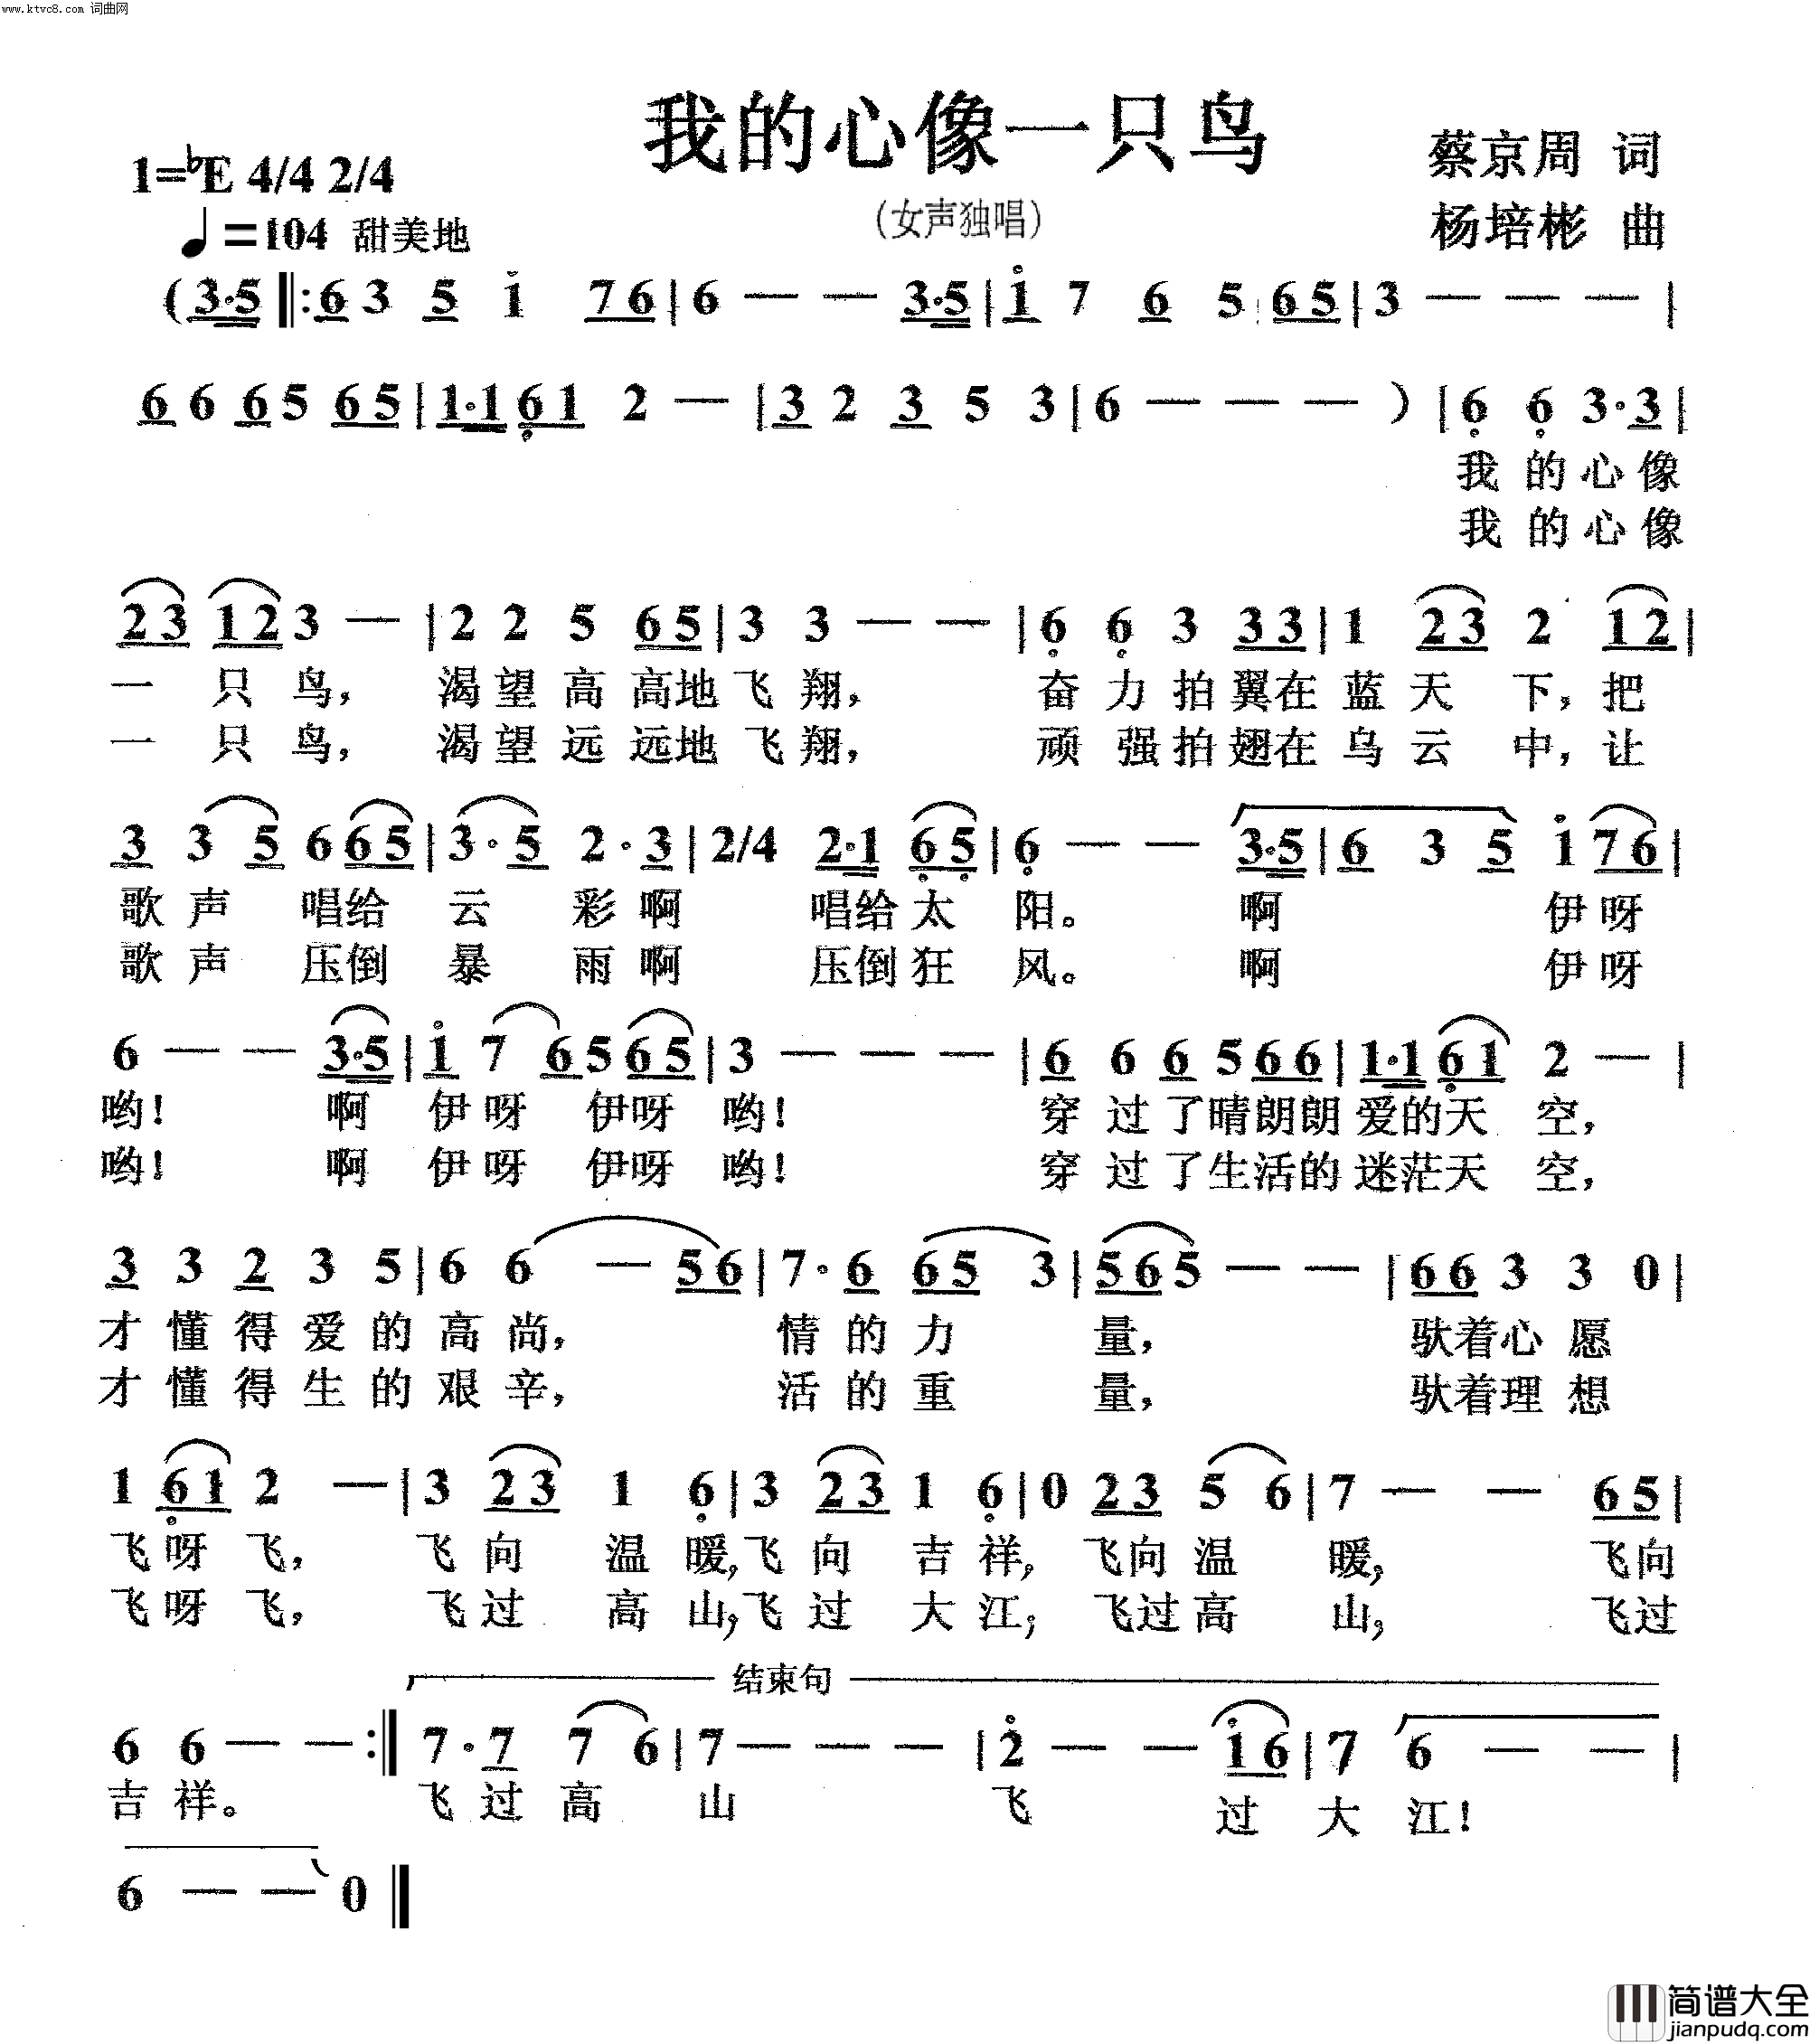 www.ktvc8.com 词曲网
我的心像一只鸟
1=♭E 4/4 2/4
蔡京周 词
(女声独唱)
♩=104 甜美地
杨培彬 曲
(3·5 ‖: 6 3 5 i 7 6 | 6 — — 3·5 | i 7 6 5 6 5 | 3 — — — |
6 6 6 5 6 5 | 1·1 6 1 2 — | 3 2 3 5 3 | 6 — — — ) | 6 6 3·3 |
我 的 心 像
我 的 心 像
2 3 1 2 3 — | 2 2 5 6 5 | 3 3 — — | 6 6 3 3 3 | 1 2 3 2 1 2 |
一 只 鸟, 渴 望 高 高地 飞 翔, 奋 力 拍 翼在 蓝 天 下, 把
一 只 鸟, 渴 望 远 远地 飞 翔, 顽 强 拍 翅在 乌 云 中, 让
3 3 5 6 6 5 | 3· 5 2· 3 | 2/4 2·1 6 5 | 6 — — 3·5 | 6 3 5 i 7 6 |
歌 声 唱给 云 彩 啊 唱给 太 阳。 啊 伊 呀
歌 声 压倒 暴 雨 啊 压倒 狂 风。 啊 伊 呀
6 — — 3·5 | i 7 6 5 6 5 | 3 — — — | 6 6 6 5 6 6 | 1·1 6 1 2 — |
哟! 啊 伊 呀 伊呀 哟! 穿 过 了 晴朗朗 爱的天 空,
哟! 啊 伊 呀 伊呀 哟! 穿 过 了 生活的 迷茫天 空,
3 3 2 3 5 | 6 6 — 5 6 | 7· 6 6 5 3 | 5 6 5 — — | 6 6 3 3 0 |
才 懂 得 爱 的 高 尚, 情 的 力 量, 驮着心 愿
才 懂 得 生 的 艰 辛, 活 的 重 量, 驮着理 想
1 6 1 2 — | 3 2 3 1 6 | 3 2 3 1 6 | 0 2 3 5 6 | 7 — — 6 5 |
飞 呀 飞, 飞 向 温 暖,飞 向 吉 祥, 飞向 温 暖, 飞向
飞 呀 飞, 飞 过 高 山,飞 过 大 江, 飞过 高 山, 飞过
结束句
6 6 — — :‖ 7· 7 7 6 | 7 — — — | 2 — — i 6 | 7 6 — — |
吉 祥。 飞 过 高 山 飞 过 大 江!
6 — — 0 ‖
简谱大全
jianpudq.com